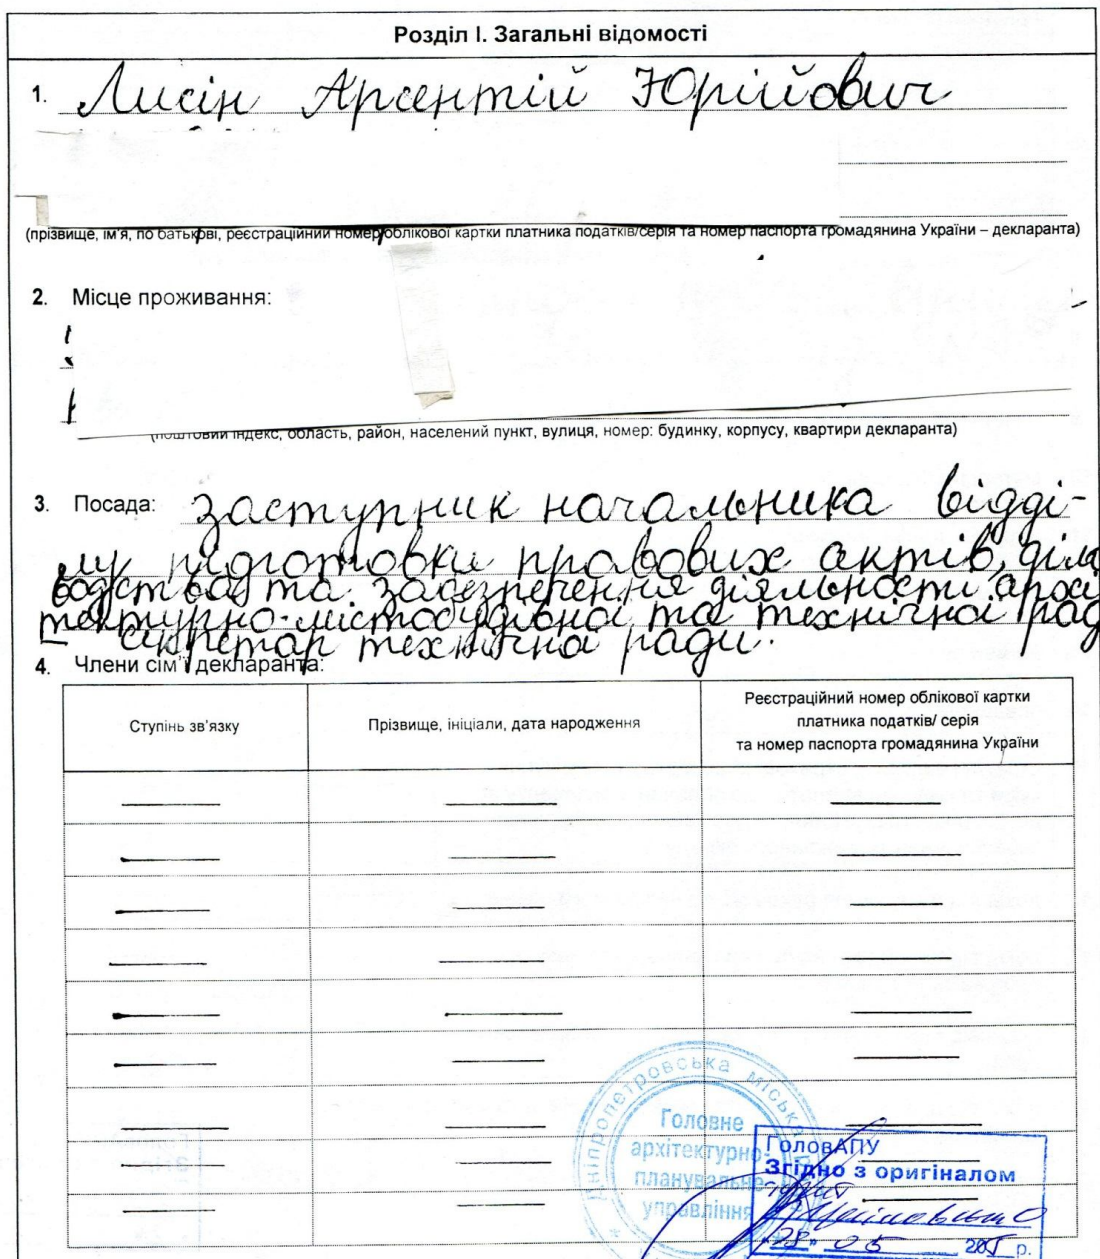 Розділ І. Загальні відомості
1. Лисін Арсентій Юрійович
(прізвище, ім'я, по батькові, реєстраційний номер облікової картки платника податків/серія та номер паспорта громадянина України – декларанта)
2. Місце проживання:
(поштовий індекс, область, район, населений пункт, вулиця, номер: будинку, корпусу, квартири декларанта)
3. Посада: заступник начальника відді-
лу підготовки правових актів, діло
водства та забезпечення діяльності архі
тектурно-містобудівної та технічної рад
– секретар технічної ради.
4. Члени сім'ї декларанта:
Ступінь зв'язку
Прізвище, ініціали, дата народження
Реєстраційний номер облікової картки
платника податків/ серія
та номер паспорта громадянина України
Дніпропетровська міськ
Головне
архітектурно-
планувальне
управління
ГоловАПУ
Згідно з оригіналом
"28" 05 2015 р.